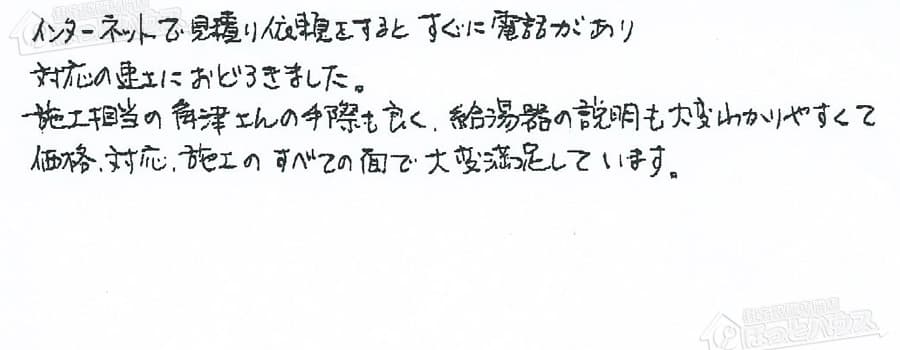 インターネットで見積り依頼をするとすぐに電話があり
対応の速さにおどろきました。
施工担当の角津さんの手際も良く、給湯器の説明も大変わかりやすくて
価格、対応、施工のすべての面で大変満足しています。
ほっとハウス